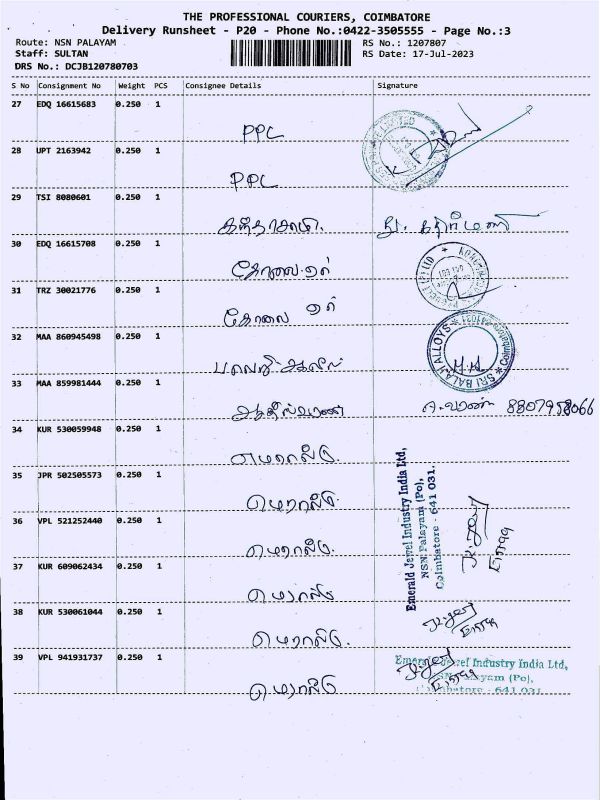 THE PROFESSIONAL COURIERS, COIMBATORE
Delivery Runsheet - P20 - Phone No.:0422-3505555 - Page No.:3
Route: NSN PALAYAM RS No.: 1207807
Staff: SULTAN RS Date: 17-Jul-2023
DRS No.: DCJB120780703
S No Consignment No Weight PCS Consignee Details Signature
27 EDQ 16615683 0.250 1
PPC
28 UPT 2163942 0.250 1
PPC
29 TSI 8080601 0.250 1
கந்தசாமி.
30 EDQ 16615708 0.250 1
31 TRZ 30021776 0.250 1
32 MAA 860945498 0.250 1
SRI BALAJI ALLOYS
33 MAA 859981444 0.250 1
8807958066
34 KUR 530059948 0.250 1
எமரால்டு.
35 JPR 502505573 0.250 1
எமரால்டு.
Emerald Jewel Industry India Ltd,
NSN Palayam (Po),
Coimbatore - 641 031.
36 VPL 521252440 0.250 1
எமரால்டு.
37 KUR 609062434 0.250 1
எமரால்டு
38 KUR 530061044 0.250 1
எமரால்டு.
39 VPL 941931737 0.250 1
எமரால்டு
Emerald Jewel Industry India Ltd,
NSN Palayam (Po),
Coimbatore - 641 031.